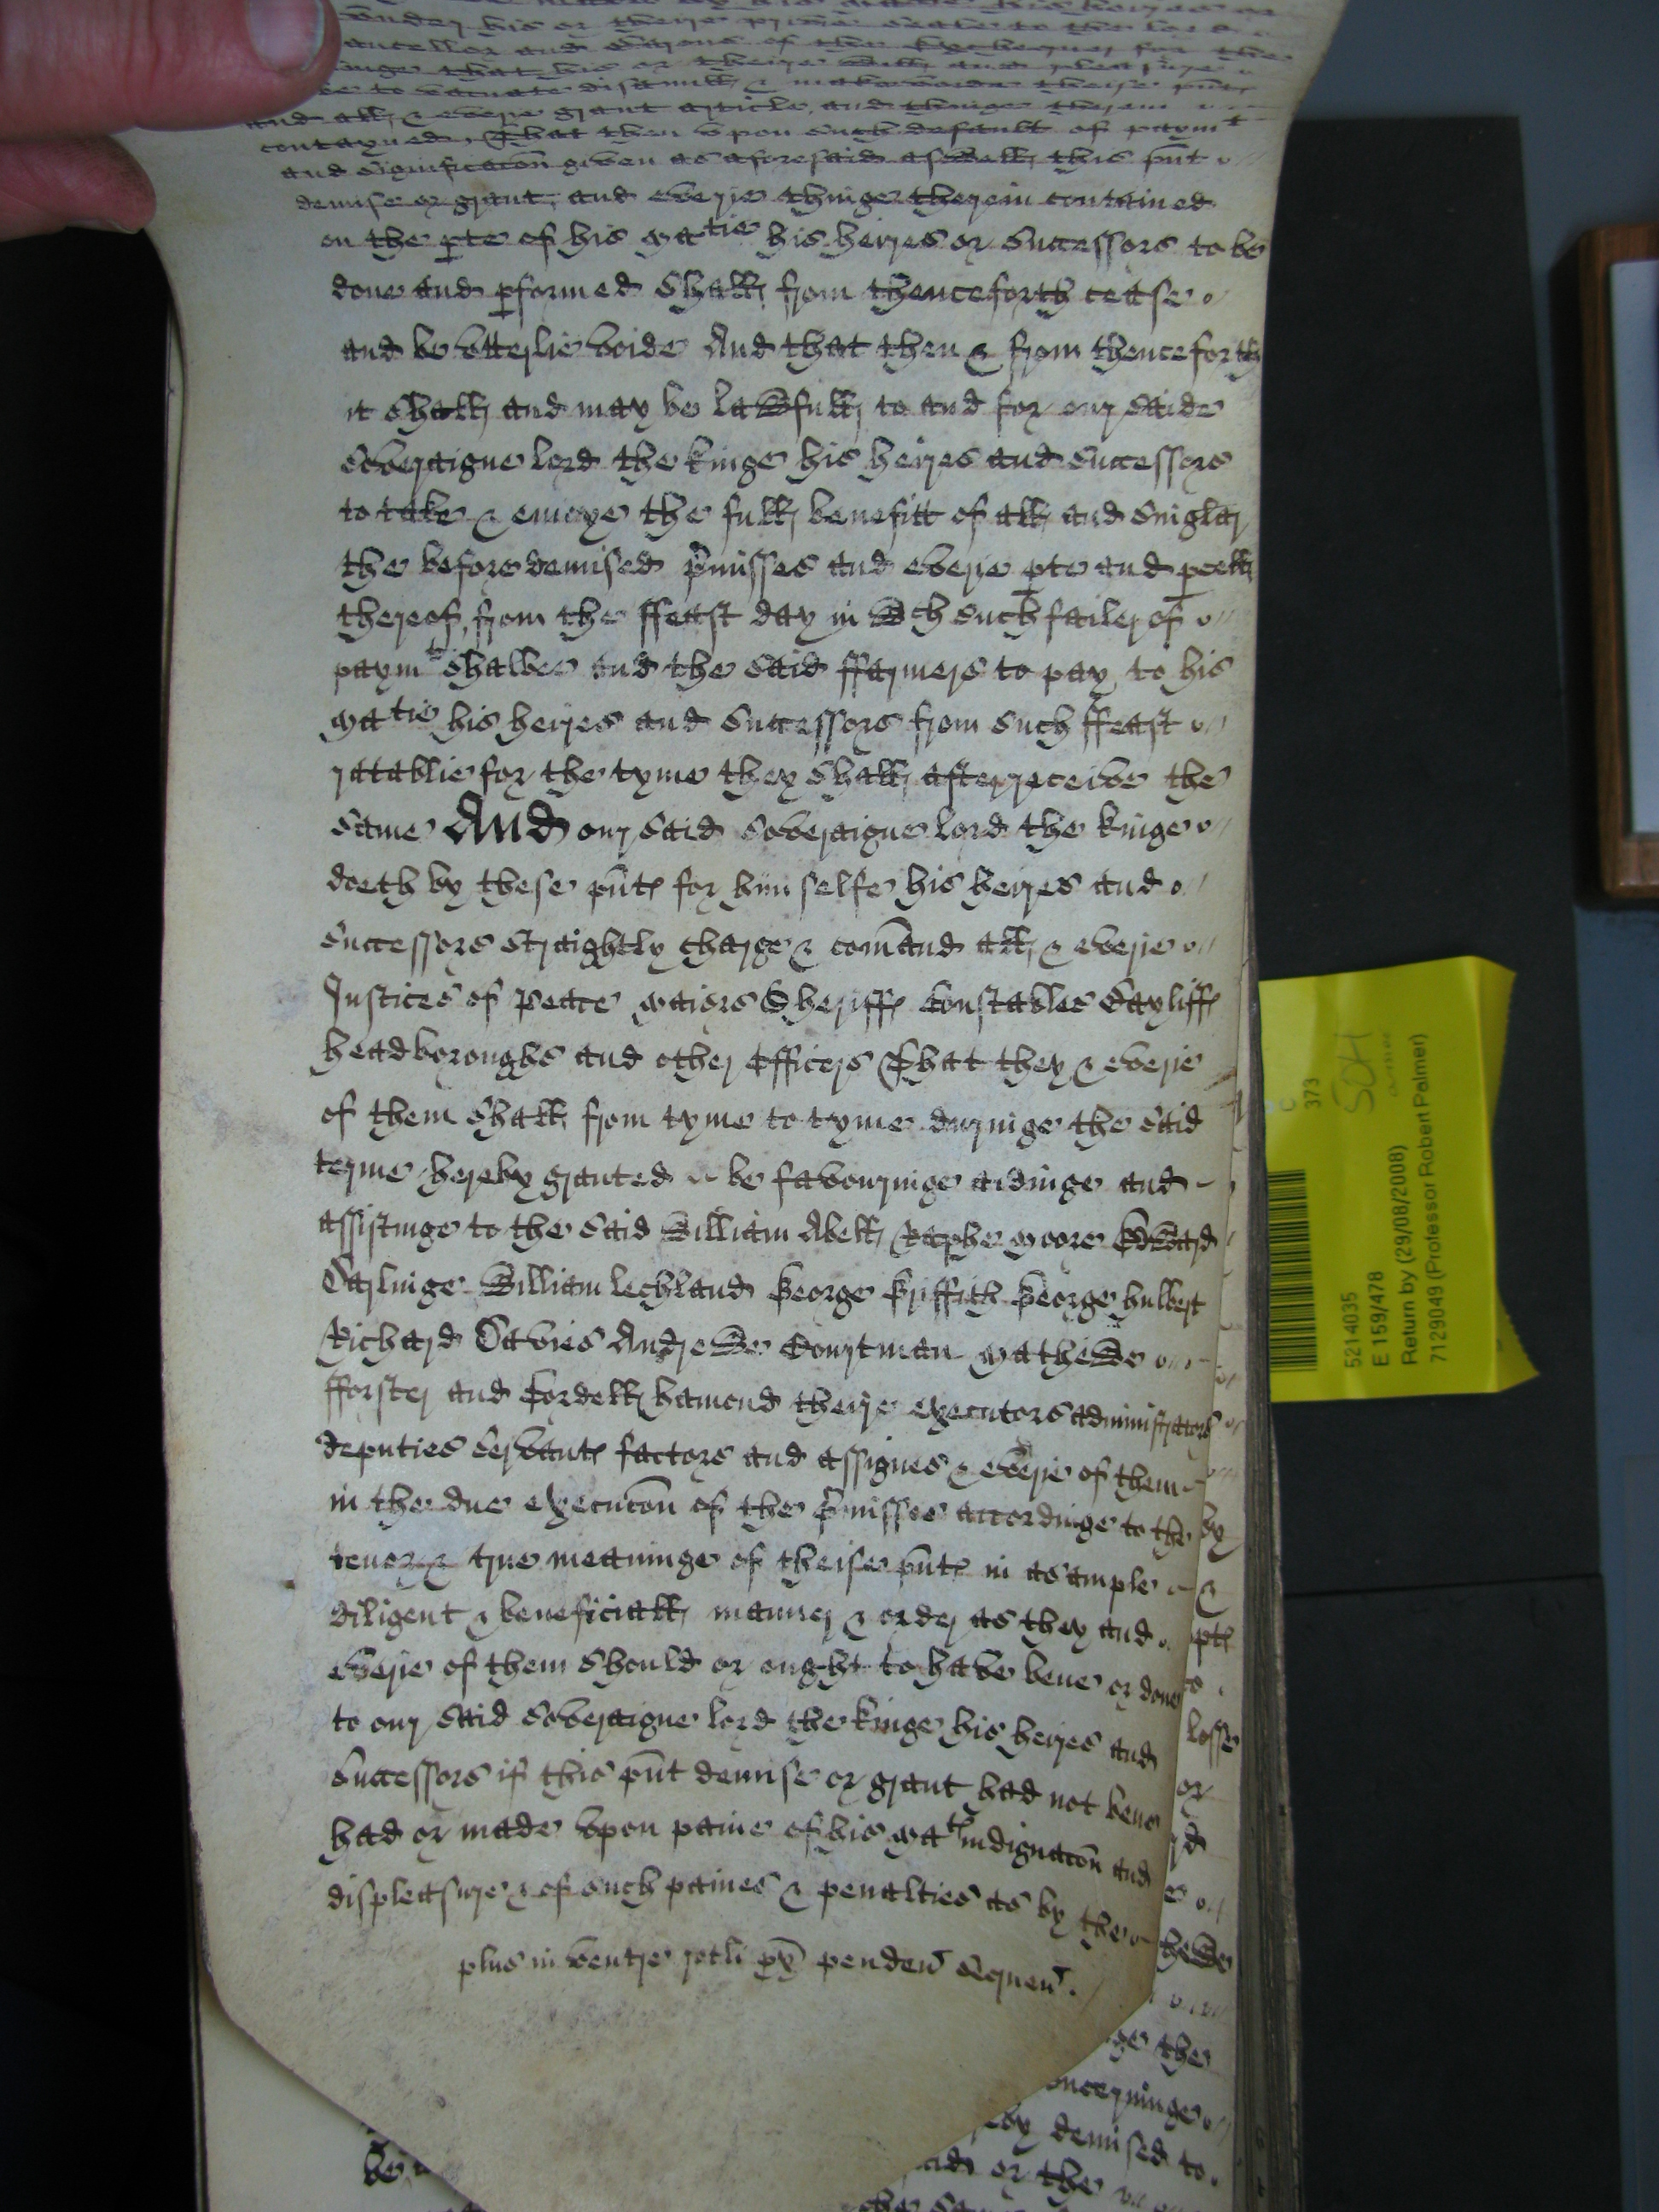 under his or theire privie seale to the lord
Chancellor and Barons of the Exchequer for the
that his or theire will and pleasure
to vacate disanull & make voide theise pñts
and all & everie graunt article and thinge therein
contayned, That then upon such default of paymt
and significacõn given as aforesaid aswell this pñt
demise or graunt, and everie thinge therein contained
on the pte of his Matie his heires or successors to be
done and pformed shall from thenceforth cease
and be utterlie voide And that then & from thenceforth
it shall and may be lawfull to and for our saide
soveraigne lord the kinge his heires and successors
to take & enioye the full benefitt of all and singler
the before demised pmisses and everie pte and pcell
thereof, from the ffeast day in wch such failer of
paymt shalbee and the said ffarmers to pay to his
Matie his heires and successors from such ffeast
ratablie for the tyme they shall after receive the
same And our said soveraigne lord the kinge
doeth by these pñts for himselfe his heires and
successors straightly charge & comãnd all & everie
Justices of Peace Maiors Sheriffs Constables Bayliffs
headboroughs and other Officers That they & everie
of them shall from tyme to tyme duringe the said
terme hereby graunted be favouringe aidinge and
assistinge to the said William Abell, Raphe Moore Edward
Darlinge William Lechland George Griffith George Hulbert
Richard Davies Andrewe Dourtman Mathewe
fforster and Cordell Hamond theire executors administrators
deputies servants factors and assignes & everie of them
in the due execucõn of the pmisses accordinge to the
tenor & true meaninge of theise pñts in as ample
diligent & beneficiall manner & order as they and
everie of them should or ought to have bene or done
to our said soveraigne lord the kinge his heires and
successors if this pñt demise or graunt had not bene
had or made upon paine of his Mats indignacõn and
displeasure & of such paines & penalties as by the
plus in ventre rotli px penden sequen.
by
&
pts
losse
or
thewe
the
concerninge
demised to
or the
be
5214035
E 159/478
Return by (29/08/2008)
7129049 (Professor Robert Palmer)
373
SOH